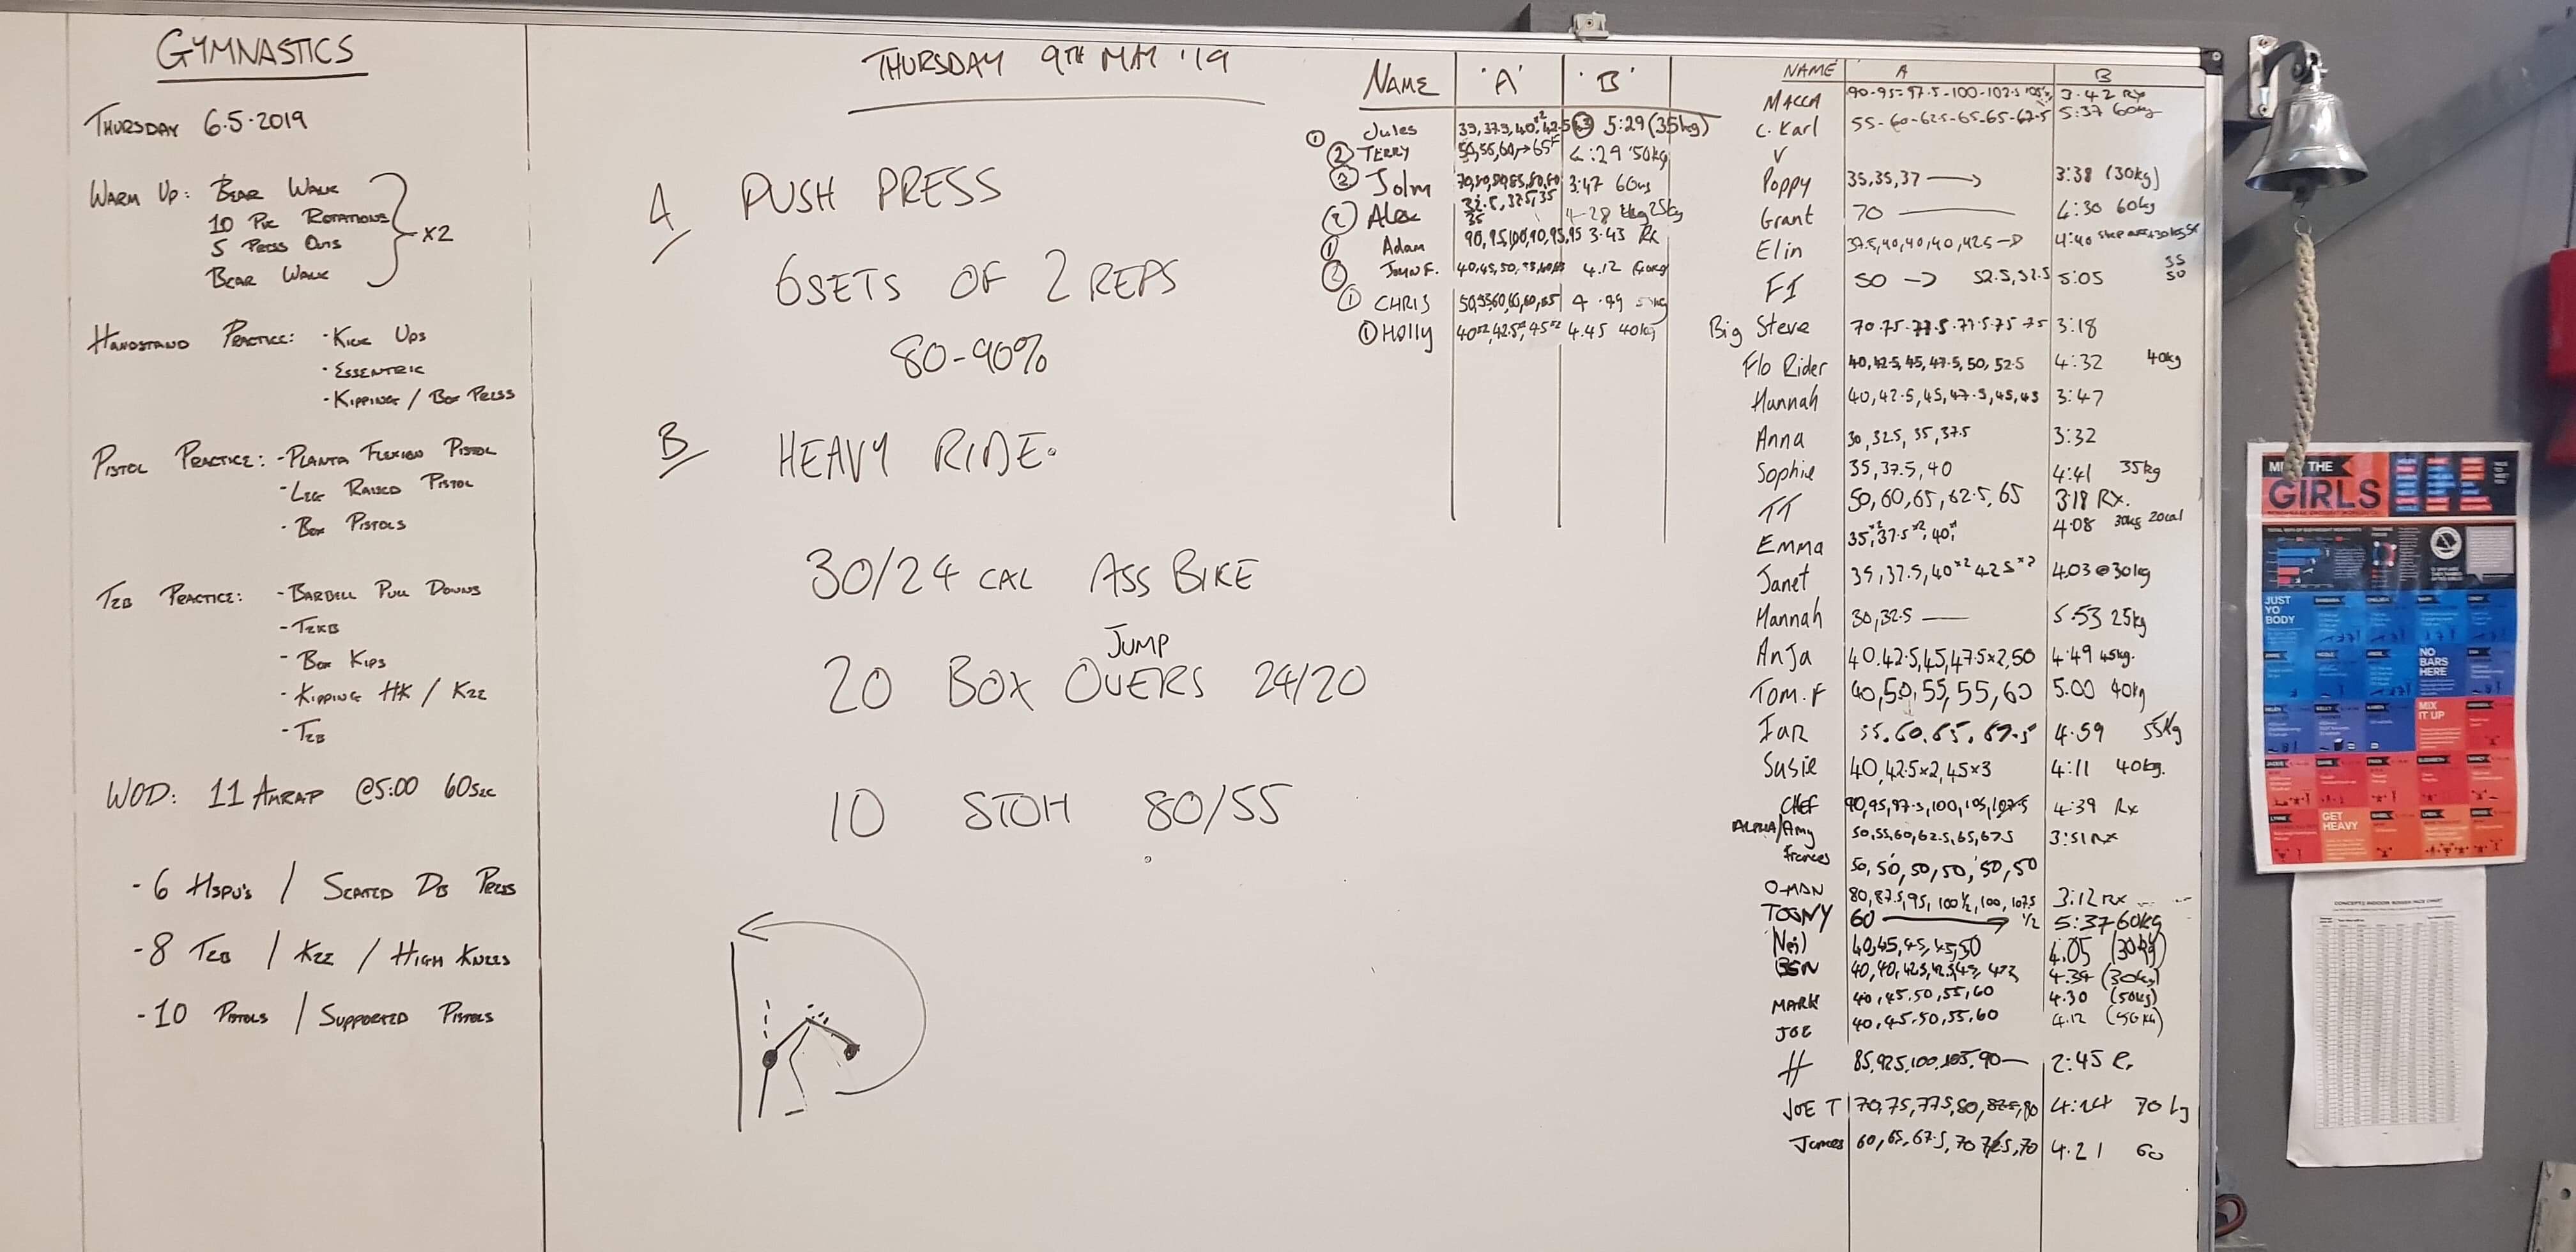 GYMNASTICS
THURSDAY 6.5.2019
WARM UP: BEAR WALK
10 PVC ROTATIONS
5 PRESS OUTS
BEAR WALK
X2
HANDSTAND PRACTICE: - KICK UPS
- ESSENTRIC
- KIPPING / BOX PRESS
PISTOL PRACTICE: - PLANTA FLEXION PISTOL
- LEG RAISED PISTOL
- BOX PISTOLS
T2B PRACTICE: - BARBELL PULL DOWNS
- T2KB
- BOX KIPS
- KIPPING HK / K2E
- T2B
WOD: 11 AMRAP @5:00 60SEC
- 6 HSPU'S / SEATED DB PRESS
- 8 T2B / K2E / HIGH KNEES
- 10 PISTOLS / SUPPORTED PISTOLS
THURSDAY 9TH MAY '19
A PUSH PRESS
6 SETS OF 2 REPS
80-90%
B HEAVY RIDE.
30/24 CAL ASS BIKE
JUMP
20 BOX OVERS 24/20
10 STOH 80/55
NAME 'A' 'B'
① Jules 35, 37.5, 40 5:29 (35kg)
② TERRY 50, 55, 60, → 65F 4:29 50kg
② John 3:47 60kg
② Alex 32.5, 32.5, 35 35 4-28 25kg
① Adam 90, 95, 100, 90, 95, 95 3.43 Rx
② JOHN F. 4.12
① CHRIS 50, 55, 60, 60, 60, 65
① Holly 40x2, 42.5x2, 45x2 4.45 40kg
NAME A B
MACCA 90-95-97.5-100-102.5 3.42 Rx
C. Karl 55-60-62.5-65-65-67.5 5:37 60kg
V
Poppy 35, 35, 37 → 3:38 (30kg)
Grant 70 4:30 60kg
Elin 37.5, 40, 40, 40, 42.5 → 4:40
FI 50 → 52.5, 52.5 5:05 35 50
Big Steve 70.75-77.5-77.5-75-75 3:18
Flo Rider 40, 42.5, 45, 47.5, 50, 52.5 4:32 40kg
Hannah 40, 42.5, 45, 47.5, 45, 45 3:47
Anna 30, 32.5, 35, 37.5 3:32
Sophie 35, 37.5, 40 4:41 35kg
TT 50, 60, 65, 62.5, 65 3:18 RX.
Emma 35x2, 37.5x2, 40x1 4:08 30kg 20cal
Janet 35, 37.5, 40x2 42.5x2 4.03 @ 30kg
Hannah 30, 32.5 — 5.53 25kg
Anja 40, 42.5, 45, 47.5x2, 50 4:49 45kg.
TOM.F 40, 50, 55, 55, 60 5.00 40kg
55.60.65.67.5 4:59 55kg
Susie 40, 42.5x2, 45x3 4:11 40kg.
CHEF 90, 95, 97.5, 100, 105, 107.5 4:39 Rx
ALPHA/Amy 50, 55, 60, 62.5, 65, 67.5 3:51 RX
Frances 50, 50, 50, 50, 50, 50
O-MAN 80, 87.5, 95, 100 1/2, 100, 107.5 3:12 RX
60 → 1/2 5:37 60kg
40, 45, 45, 45, 50 4.05 (30kg)
BEN 40, 40, 42.5, 42.5, 45, 47.5 4.34 (30kg)
MARK 40, 45, 50, 55, 60 4.30 (50kg)
JOE 40, 45, 50, 55, 60 4.12
H 85, 92.5, 100, 105, 90 — 2:45
JOE T 70, 75, 77.5, 80, 82.5, 80 4:24 70kg
James 60, 65, 67.5, 70 72.5, 70 4.21 60
THE
GIRLS
JUST
YO
BODY
NO
BARS
HERE
MIX
IT UP
GET
HEAVY